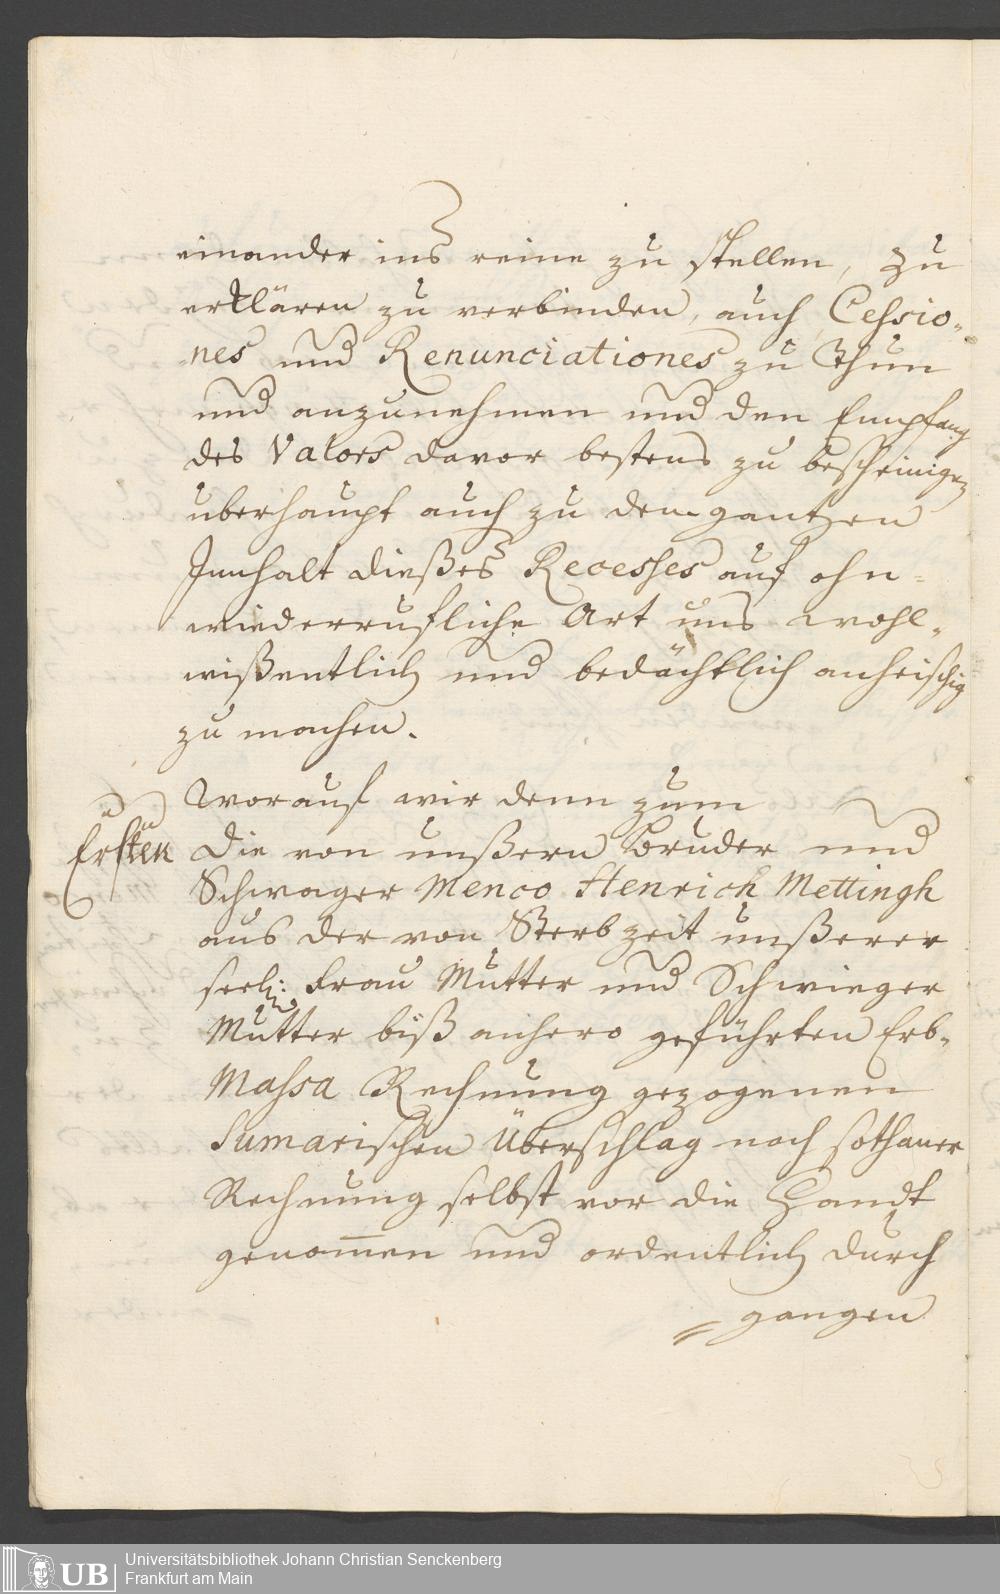 einander ins reine zu stellen, zu
erklären zu verbinden, auch Cessio-
nes und Renunciationes zu thun
und anzunehmen und den Empfang
des Valors davor bestens zu bescheinigen
uberhaupt auch zu dem gantzen
Innhalt dießes Recesses auf ohn-
wiederrufliche Art uns wohl-
wißentlich und bedächtlich anheischig
zu machen.
Worauf wir denn zum
Ersten
die von unßerm Bruder und
Schwager Menco Henrich Mettingh
aus der von Sterbzeit unßerer
seel: Frau Mutter und Schwieger
Mutter biß anhero geführten Erb-
Massa Rechnung gezogenen
Sumarischen Überschlag nach sothaner
Rechnung selbst vor die Handt
genom̅en und ordentlich durch
= gangen
Universitätsbibliothek Johann Christian Senckenberg
Frankfurt am Main
UB